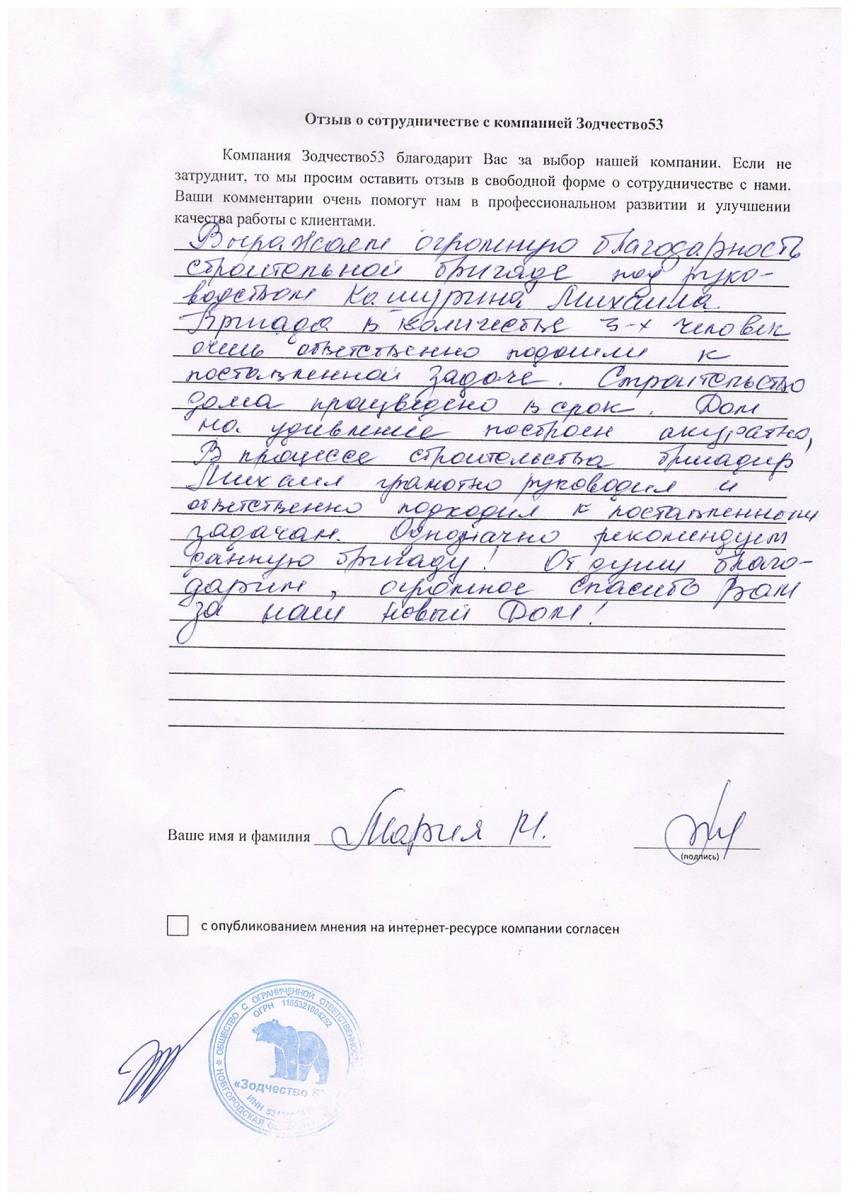 Отзыв о сотрудничестве с компанией Зодчество53
Компания Зодчество53 благодарит Вас за выбор нашей компании. Если не
затруднит, то мы просим оставить отзыв в свободной форме о сотрудничестве с нами.
Ваши комментарии очень помогут нам в профессиональном развитии и улучшении
качества работы с клиентами.
Выражаем огромную благодарность
строительной бригаде под руко-
водством Кашурина Михаила.
Бригада в количестве 3-х человек
очень ответственно подошли к
поставленной задаче. Строительство
дома произведено в срок. Дом
на удивление построен акуратно,
В процессе строительства бригадир
Михаил грамотно руководил и
ответственно подходил к поставленным
задачам. Однозначно рекомендуем
данную бригаду! От души благо-
дарим, огромное спасибо Вам
за наш новый Дом!
Ваше имя и фамилия Мария М.
(подпись)
с опубликованием мнения на интернет-ресурсе компании согласен
ОБЩЕСТВО С ОГРАНИЧЕННОЙ ОТВЕТСТВЕННОСТЬЮ
ОГРН 1185321004262
«Зодчество
ИНН
НОВГОРОДСКАЯ